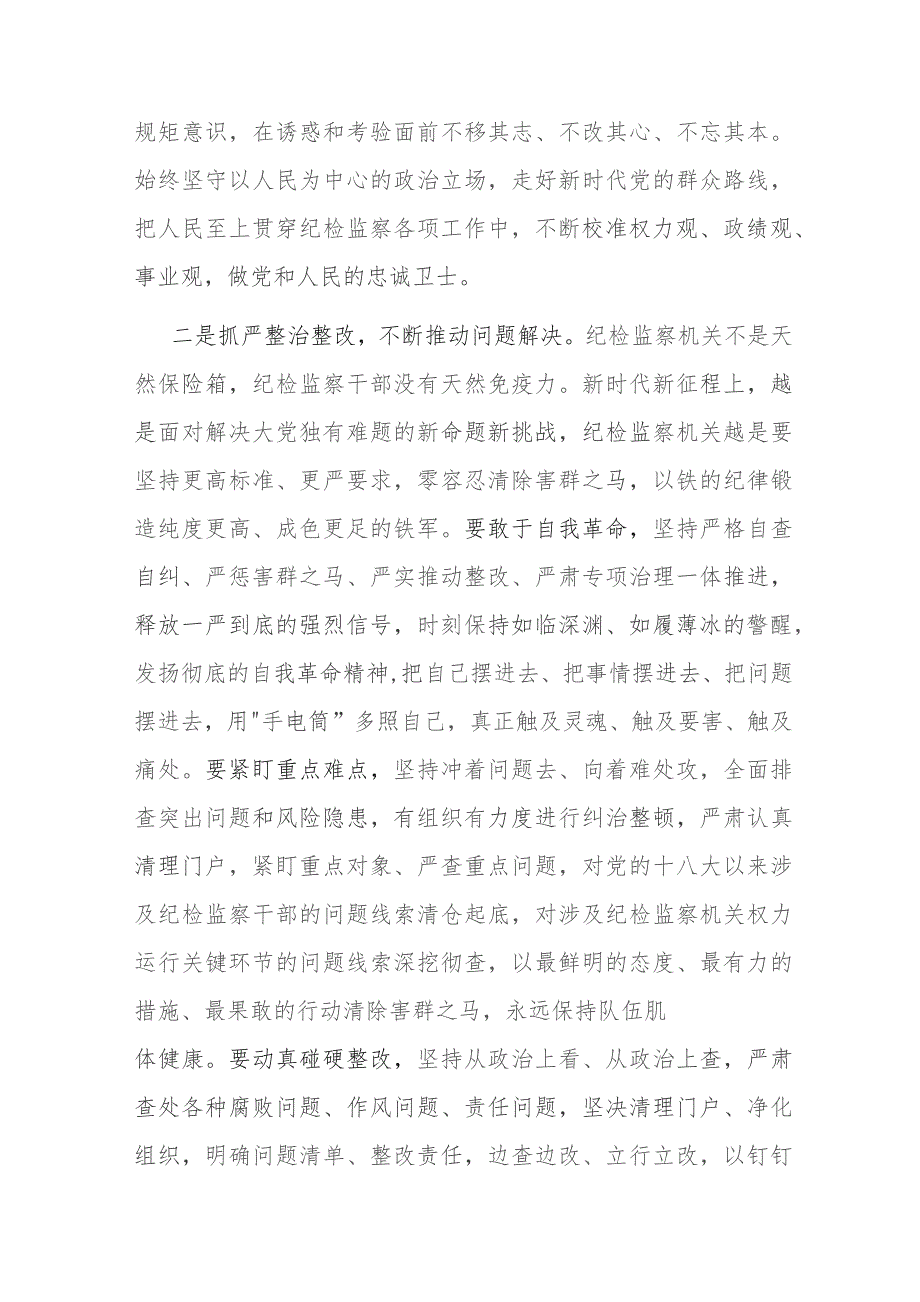 规矩意识，在诱惑和考验面前不移其志、不改其心、不忘其本。
始终坚守以人民为中心的政治立场，走好新时代党的群众路线，
把人民至上贯穿纪检监察各项工作中，不断校准权力观、政绩观、
事业观，做党和人民的忠诚卫士。
二是抓严整治整改，不断推动问题解决。纪检监察机关不是天
然保险箱，纪检监察干部没有天然免疫力。新时代新征程上，越
是面对解决大党独有难题的新命题新挑战，纪检监察机关越是要
坚持更高标准、更严要求，零容忍清除害群之马，以铁的纪律锻
造纯度更高、成色更足的铁军。要敢于自我革命，坚持严格自查
自纠、严惩害群之马、严实推动整改、严肃专项治理一体推进，
释放一严到底的强烈信号，时刻保持如临深渊、如履薄冰的警醒，
发扬彻底的自我革命精神,把自己摆进去、把事情摆进去、把问题
摆进去，用"手电筒”多照自己，真正触及灵魂、触及要害、触及
痛处。要紧盯重点难点，坚持冲着问题去、向着难处攻，全面排
查突出问题和风险隐患，有组织有力度进行纠治整顿，严肃认真
清理门户，紧盯重点对象、严查重点问题，对党的十八大以来涉
及纪检监察干部的问题线索清仓起底，对涉及纪检监察机关权力
运行关键环节的问题线索深挖彻查，以最鲜明的态度、最有力的
措施、最果敢的行动清除害群之马，永远保持队伍肌
体健康。要动真碰硬整改，坚持从政治上看、从政治上查，严肃
查处各种腐败问题、作风问题、责任问题，坚决清理门户、净化
组织，明确问题清单、整改责任，边查边改、立行立改，以钉钉